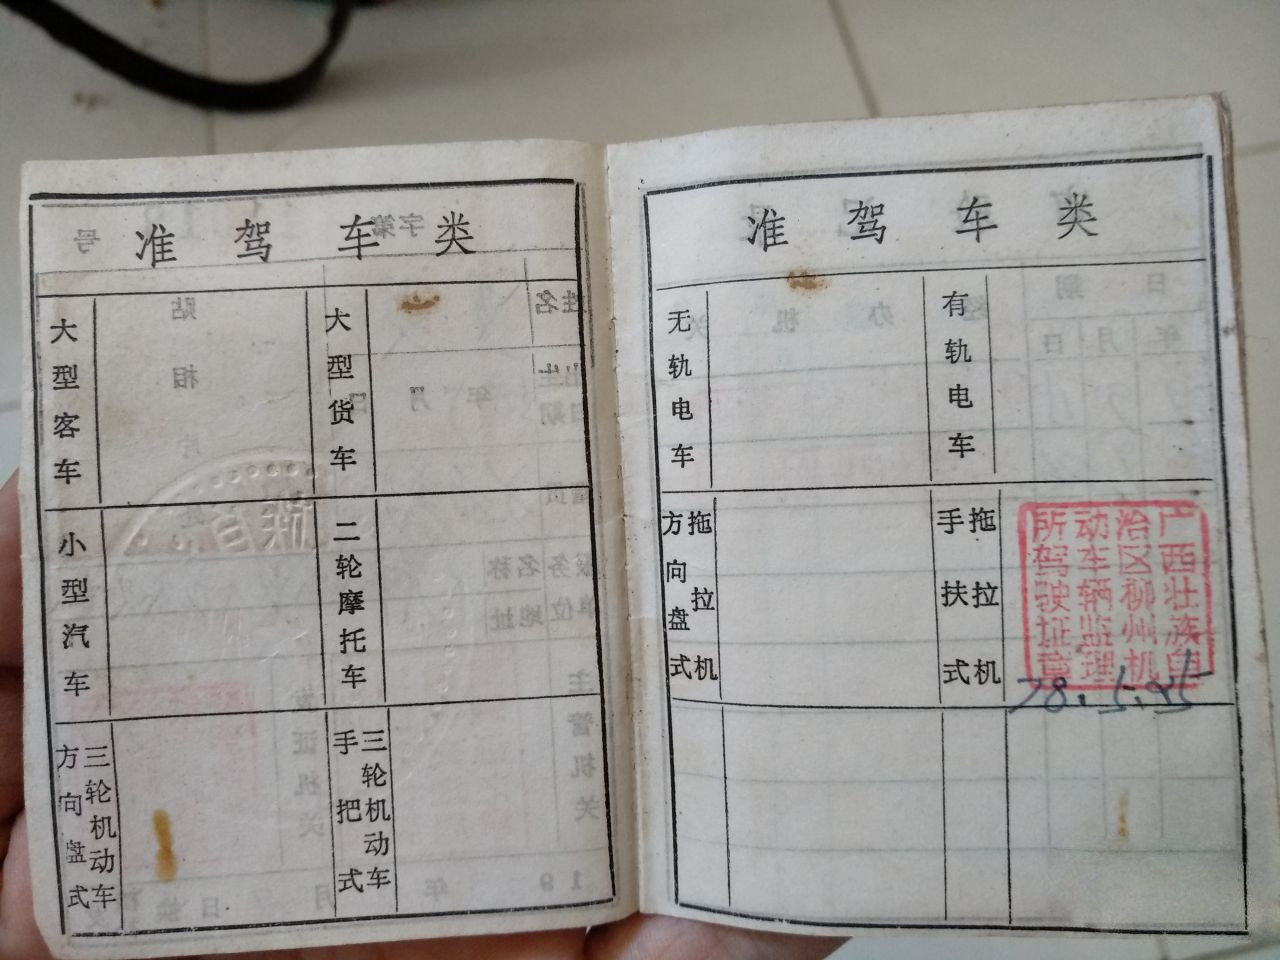 准驾车类
大型客车
大型货车
小型汽车
二轮摩托车
方向盘式三轮机动车
手把式三轮机动车
准驾车类
无轨电车
有轨电车
方向盘式拖拉机
手扶式拖拉机
广西壮族自
治区柳州机
动车辆监理
所驾驶证章
78.5.25